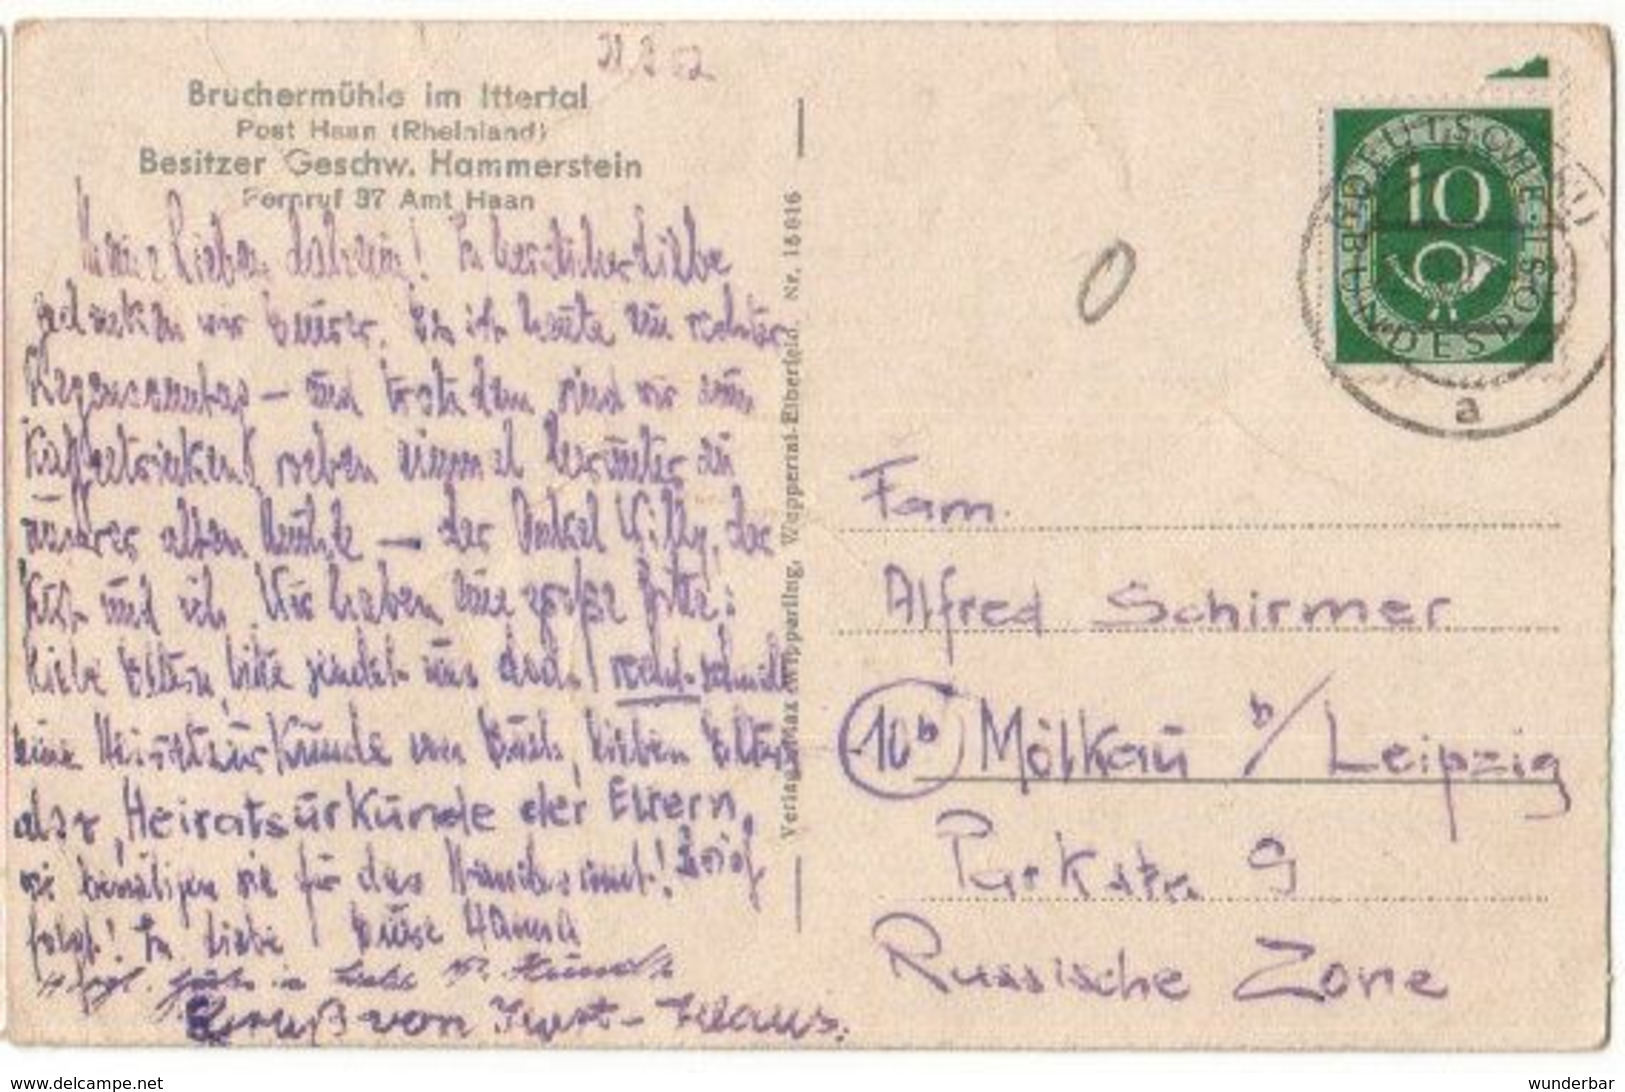 31.8.52
Bruchermühle im Ittertal
Post Haan (Rheinland)
Besitzer Geschw. Hammerstein
Fernruf 37 Amt Haan
Meine Lieben daheim! In herzlicher Liebe
gedenken wir Eurer. Es ist heute ein rechter
Regensonntag – und trotzdem sind wir zum
Kaffeetrinken eben einmal herunter in
unsrer alten Mühle — der Onkel Willy, der
und ich. Wir haben eine große Bitte:
Liebe Eltern, bitte sendet uns doch recht schnell
eine Heiratsurkunde von Euch, lieben Eltern
also Heiratsurkunde der Eltern,
wir benötigen sie für das Brief
folgt! In Liebe Eure Hanna
Gruß von Klaus.
Verlag Max Wipperling, Wuppertal-Elberfeld. Nr. 15616
DEUTSCHE BUNDESPOST
10
a
0
Fam.
Alfred Schirmer
10b Mölkau b/Leipzig
Parkstr. 9
Russische Zone
www.delcampe.net
wunderbar